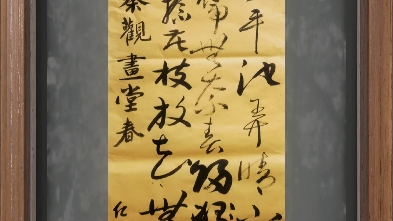 平池弄晴小
啼無奈春歸柳
捻花枝放花無
秦觀畫堂春